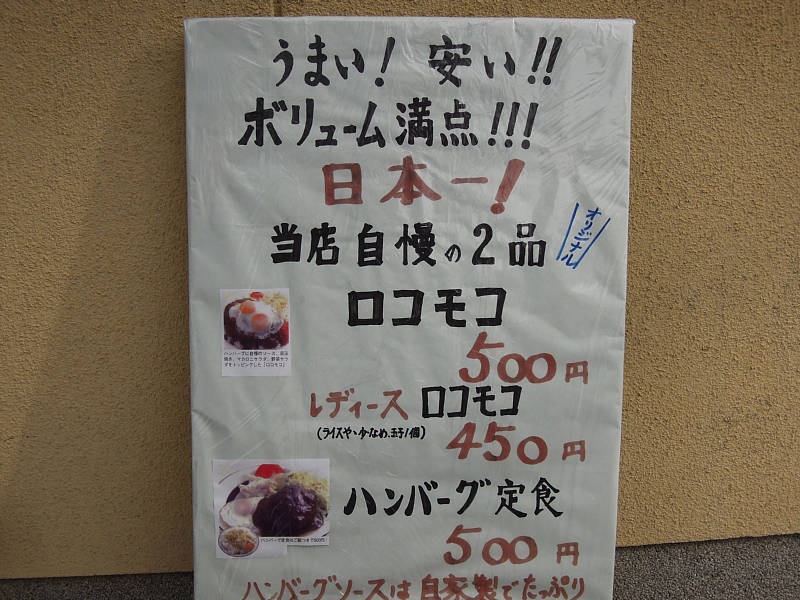 うまい! 安い!!
ボリューム満点!!!
日本一!
当店自慢の2品
オリジナル
ロコモコ
500円
ハンバーグに自慢のソース、目玉
焼き、マカロニサラダ、野菜サラ
ダをトッピングした「ロコモコ」
レディース ロコモコ
(ライスやや少なめ、玉子1個)
450円
ハンバーグ定食
ハンバーグ定食はご飯つきで500円!
500円
ハンバーグソースは自家製でたっぷり